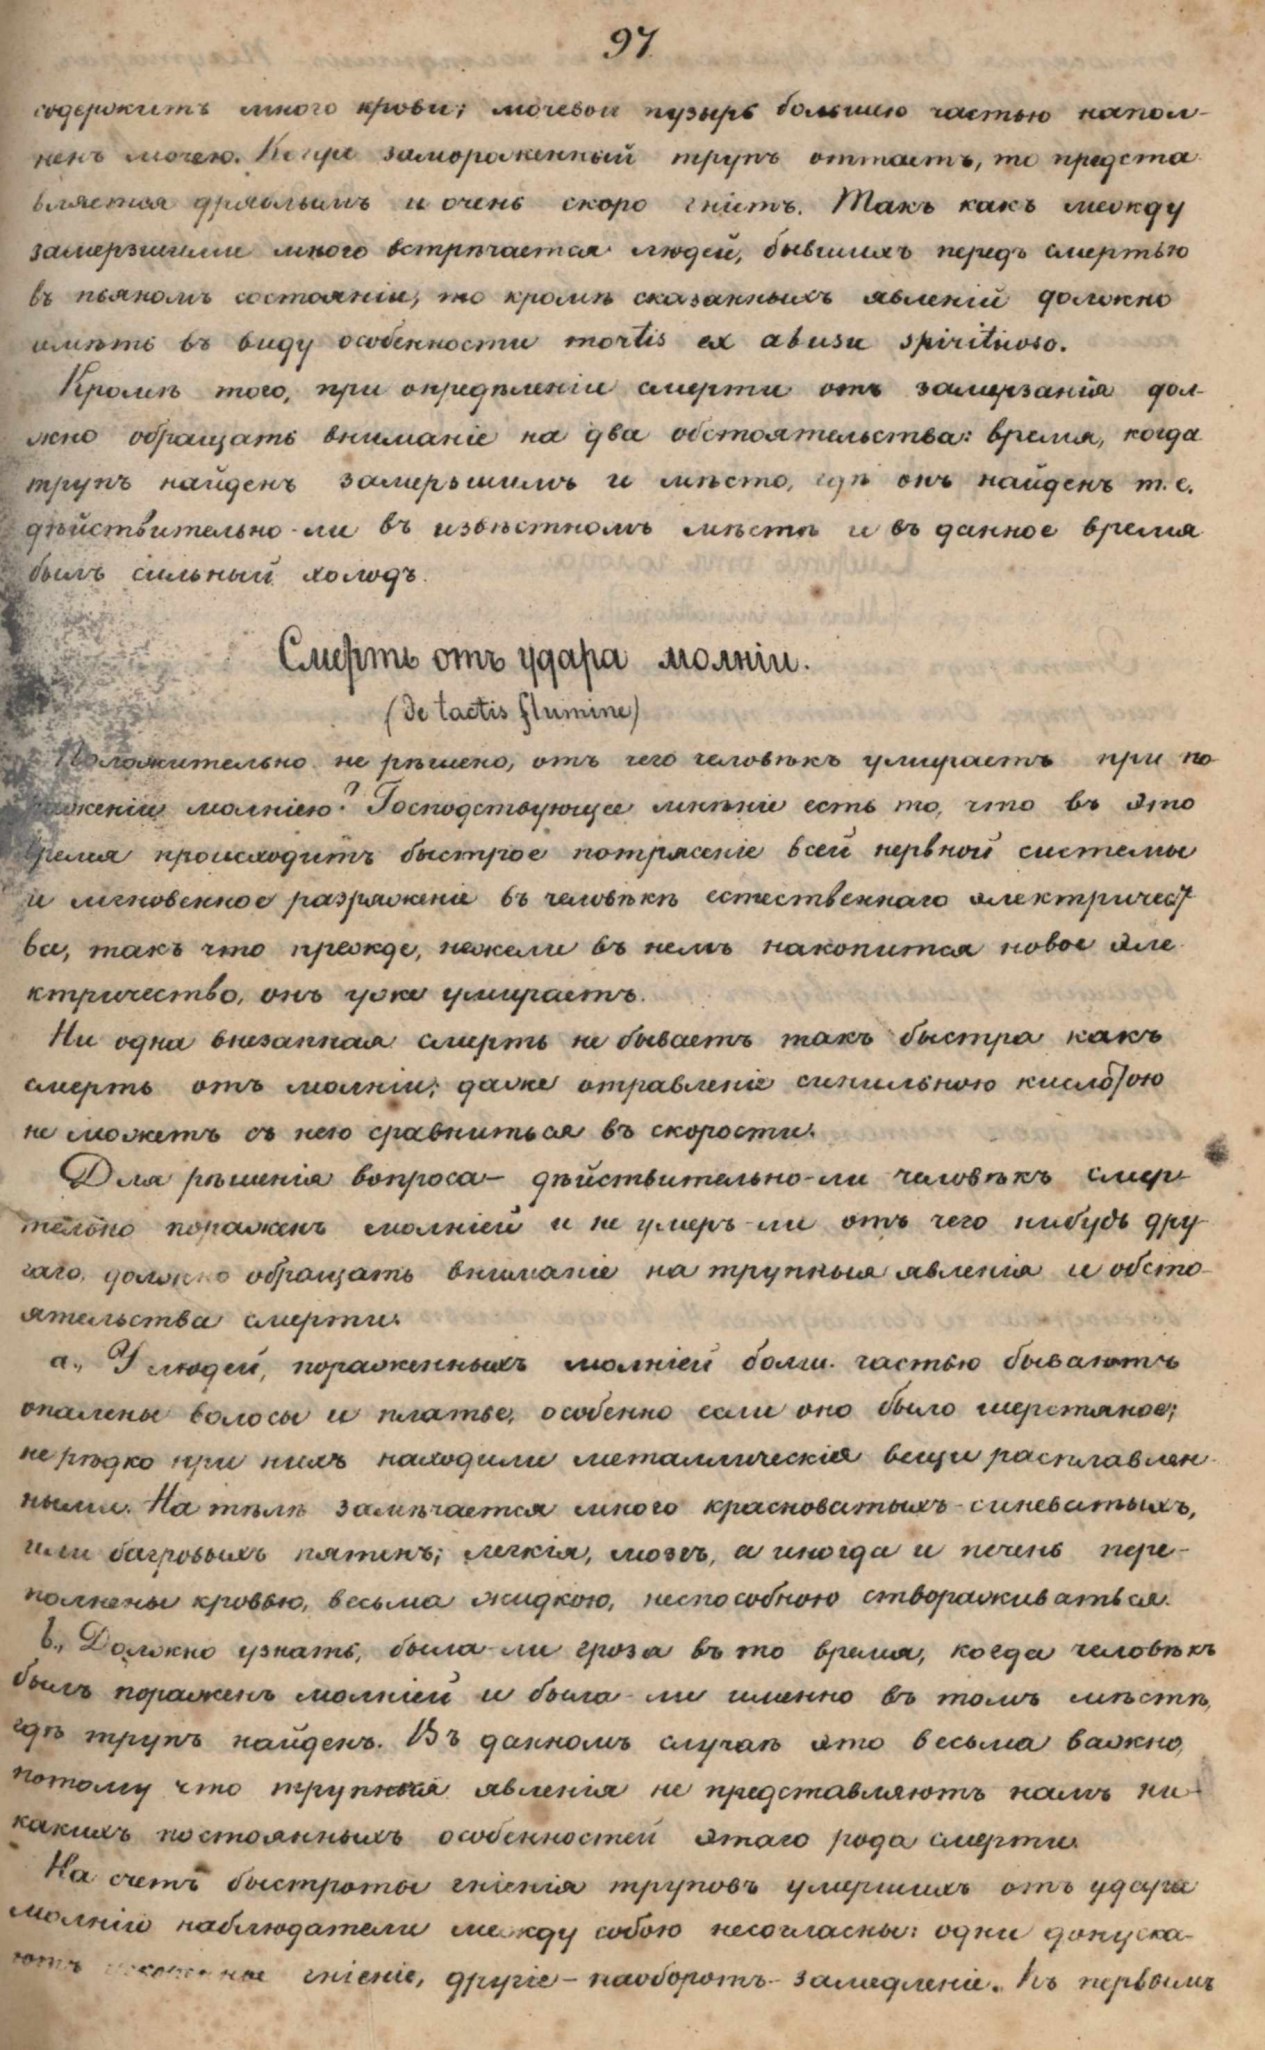 97
содержитъ много крови; мочевой пузырь большею частью напол-
ненъ мочею. Когда замороженный трупъ оттаетъ, то предста
вляется дряблымъ и очень скоро гніетъ. Такъ какъ между
замерзшими много встрѣчается людей, бывшихъ передъ смертью
въ пьяномъ состояніи, то кромѣ сказанныхъ явленій должно
имѣть въ виду особенности mortis ex abusu spirituoso.
Кромѣ того, при опредѣленіи смерти отъ замерзанія дол-
жно обращать вниманіе на два обстоятельства: время, когда
трупъ найденъ замерзшимъ и мѣсто, гдѣ онъ найденъ т.е.
дѣйствительно-ли въ извѣстномъ мѣстѣ и въ данное время
былъ сильный холодъ.
Смерть отъ удара молніи.
(de tactis flumine)
Положительно не рѣшено, отъ чего человѣкъ умираетъ при по
раженіи молніею? Господствующее мнѣніе есть то, что въ это
время происходитъ быстрое потрясеніе всей нервной системы
и мгновенное разряженіе въ человѣкѣ естественнаго электричест
ва, такъ что прежде, нежели въ немъ накопится новое эле
ктричество, онъ уже умираетъ.
Ни одна внезапная смерть не бываетъ такъ быстра какъ
смерть отъ молніи; даже отравленіе синильною кислотою
не можетъ съ нею сравниться въ скорости.
Для рѣшенія вопроса – дѣйствительно-ли человѣкъ смер-
тельно пораженъ молніей и не умеръ-ли отъ чего нибудь дру
гаго, должно обращать вниманіе на трупныя явленія и обсто-
ятельства смерти.
a., У людей, пораженныхъ молніей больш. частью бываютъ
опалены волосы и платье, особенно если оно было шерстяное;
не рѣдко при нихъ находили металлическія вещи расплавлен-
ными. На тѣлѣ замѣчается много красноватыхъ-синеватыхъ,
или багровыхъ пятенъ; легкія, мозгъ, а иногда и печень пере-
полнены кровью, весьма жидкою, неспособною створаживаться.
b., Должно узнать, была-ли гроза въ то время, когда человѣкъ
былъ пораженъ молніей и была-ли именно въ томъ мѣстѣ,
гдѣ трупъ найденъ. Въ данномъ случаѣ это весьма важно,
потому что трупныя явленія не представляютъ намъ ни-
какихъ постоянныхъ особенностей этаго рода смерти.
На счетъ быстроты гніенія труповъ умершихъ отъ удара
молніи наблюдатели между собою несогласны: одни допуска-
ютъ гніеніе, другіе – наоборотъ – замедленіе. Къ первымъ